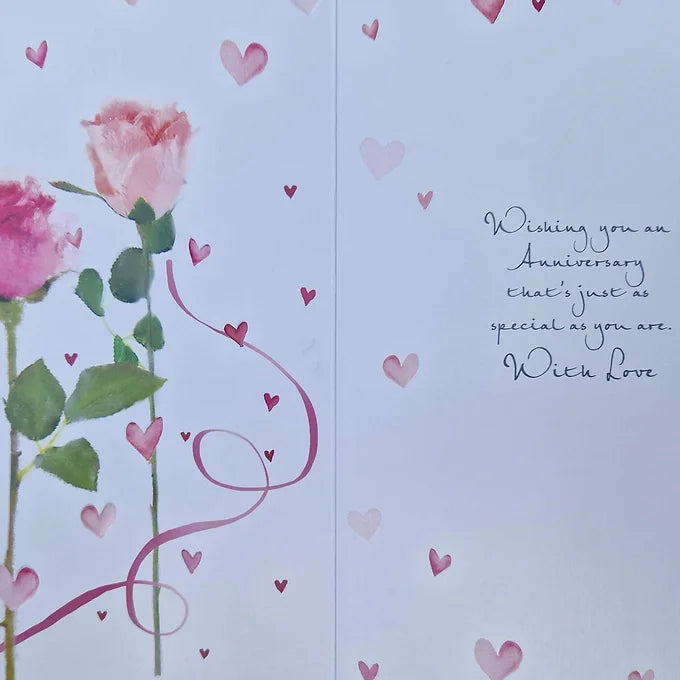 Wishing you an
Anniversary
that's just as
special as you are.
With Love